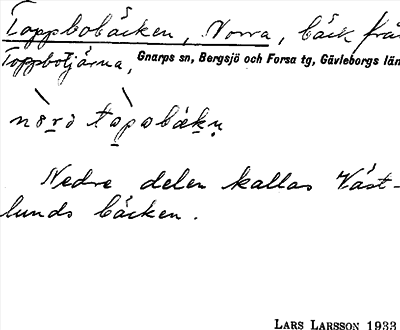 Toppbobäcken, Norra, bäck från
Toppbotjärna,
Gnarps sn, Bergsjö och Forsa tg, Gävleborgs län
Nedre delen kallas Väst-
lunds bäcken.
LARS LARSSON 1933